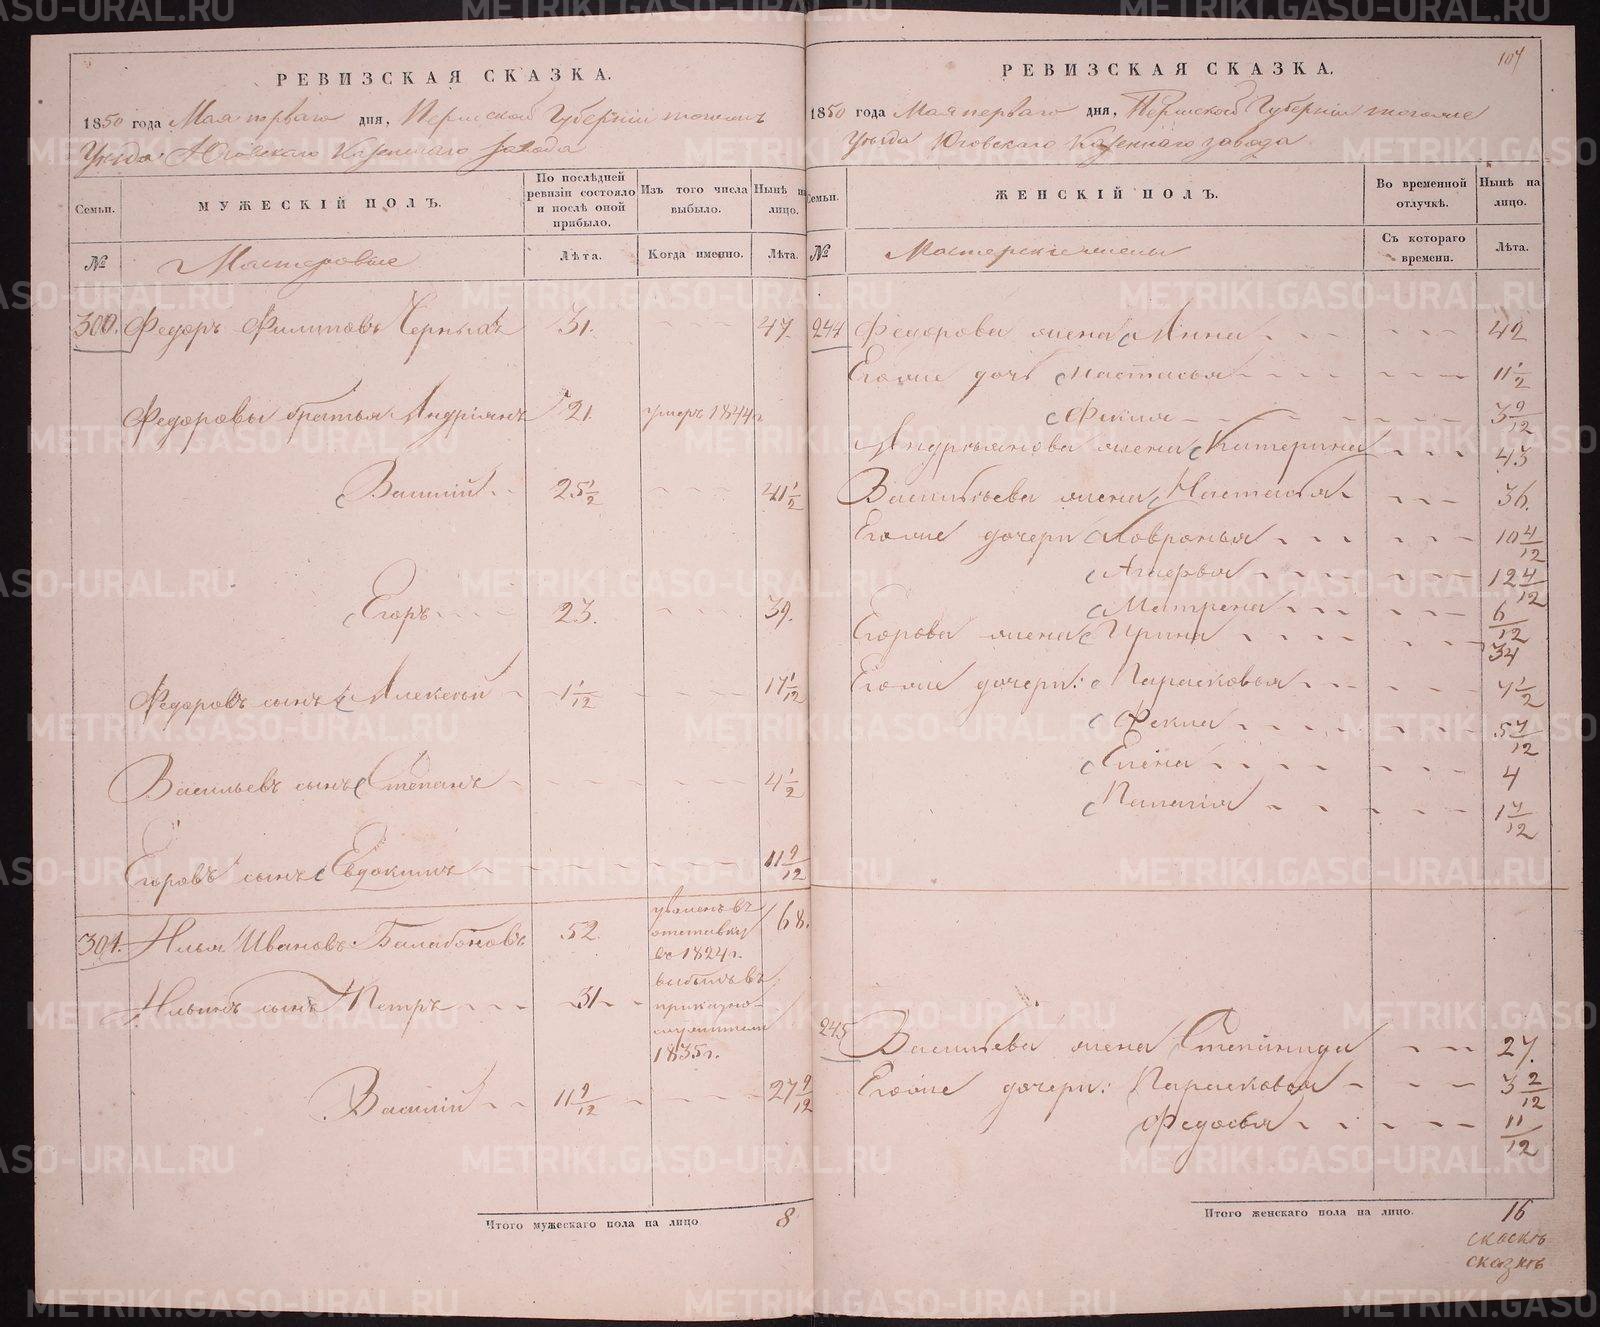 РЕВИЗСКАЯ СКАЗКА.
1850 года Мая перваго дня, Пермской Губернiи тогожъ
Уезда Юговскаго Казеннаго завода
Семьи.
МУЖЕСКIЙ ПОЛЪ.
По послѣдней ревизiи состояло и послѣ оной прибыло.
Изъ того числа выбыло.
Нынѣ на лицо.
№
Мастеровые
Лѣта.
Когда именно.
Лѣта.
300. Федоръ Филиповъ Черныхъ 31. 47.
Федоровы братья Андрiянъ 21. умеръ 1844 г.
Василiй 25 1/2 41 1/2
Егоръ 23. 39.
Федоровъ сынъ Алексѣй 1 1/12 17 1/12
Васильевъ сынъ Степанъ 4 1/2
Егоровъ сынъ Евдокимъ 11 9/12
301. Илья Ивановъ Балабановъ 52. уволенъ въ отставку въ 1824 г. 68.
Ильинъ сынъ Петръ 31 выбылъ въ 1835 г.
Василiй 11 9/12 27 9/12
Итого мужескаго пола на лицо 8
104
РЕВИЗСКАЯ СКАЗКА.
1850 года Мая перваго дня, Пермской Губернiи тогоже
Уезда Юговскаго Казеннаго завода
Семьи.
ЖЕНСКIЙ ПОЛЪ.
Во временной отлучкѣ.
Нынѣ на лицо.
№
Мастерскiе жены
Съ котораго времени.
Лѣта.
244 Федорова жена Анна 42
Егоже дочь Настасья 11 1/2
Фекла 3 9/12
Андреянова жена Катерина 43
Васильева жена Настасья 36.
Егоже дочери Ховронья 10 4/12
Марья 12 4/12
Матрена 6/12
Егорова жена Ирина 34
Егоже дочери: Парасковья 7 1/2
Фекла 5 7/12
Елена 4
Палагiя 1 7/12
245 Васильева жена Степанида 27.
Егоже дочери: Парасковья 3 2/12
Федосья 11/12
Итого женскаго пола на лицо. 16
METRIKI.GASO-URAL.RU